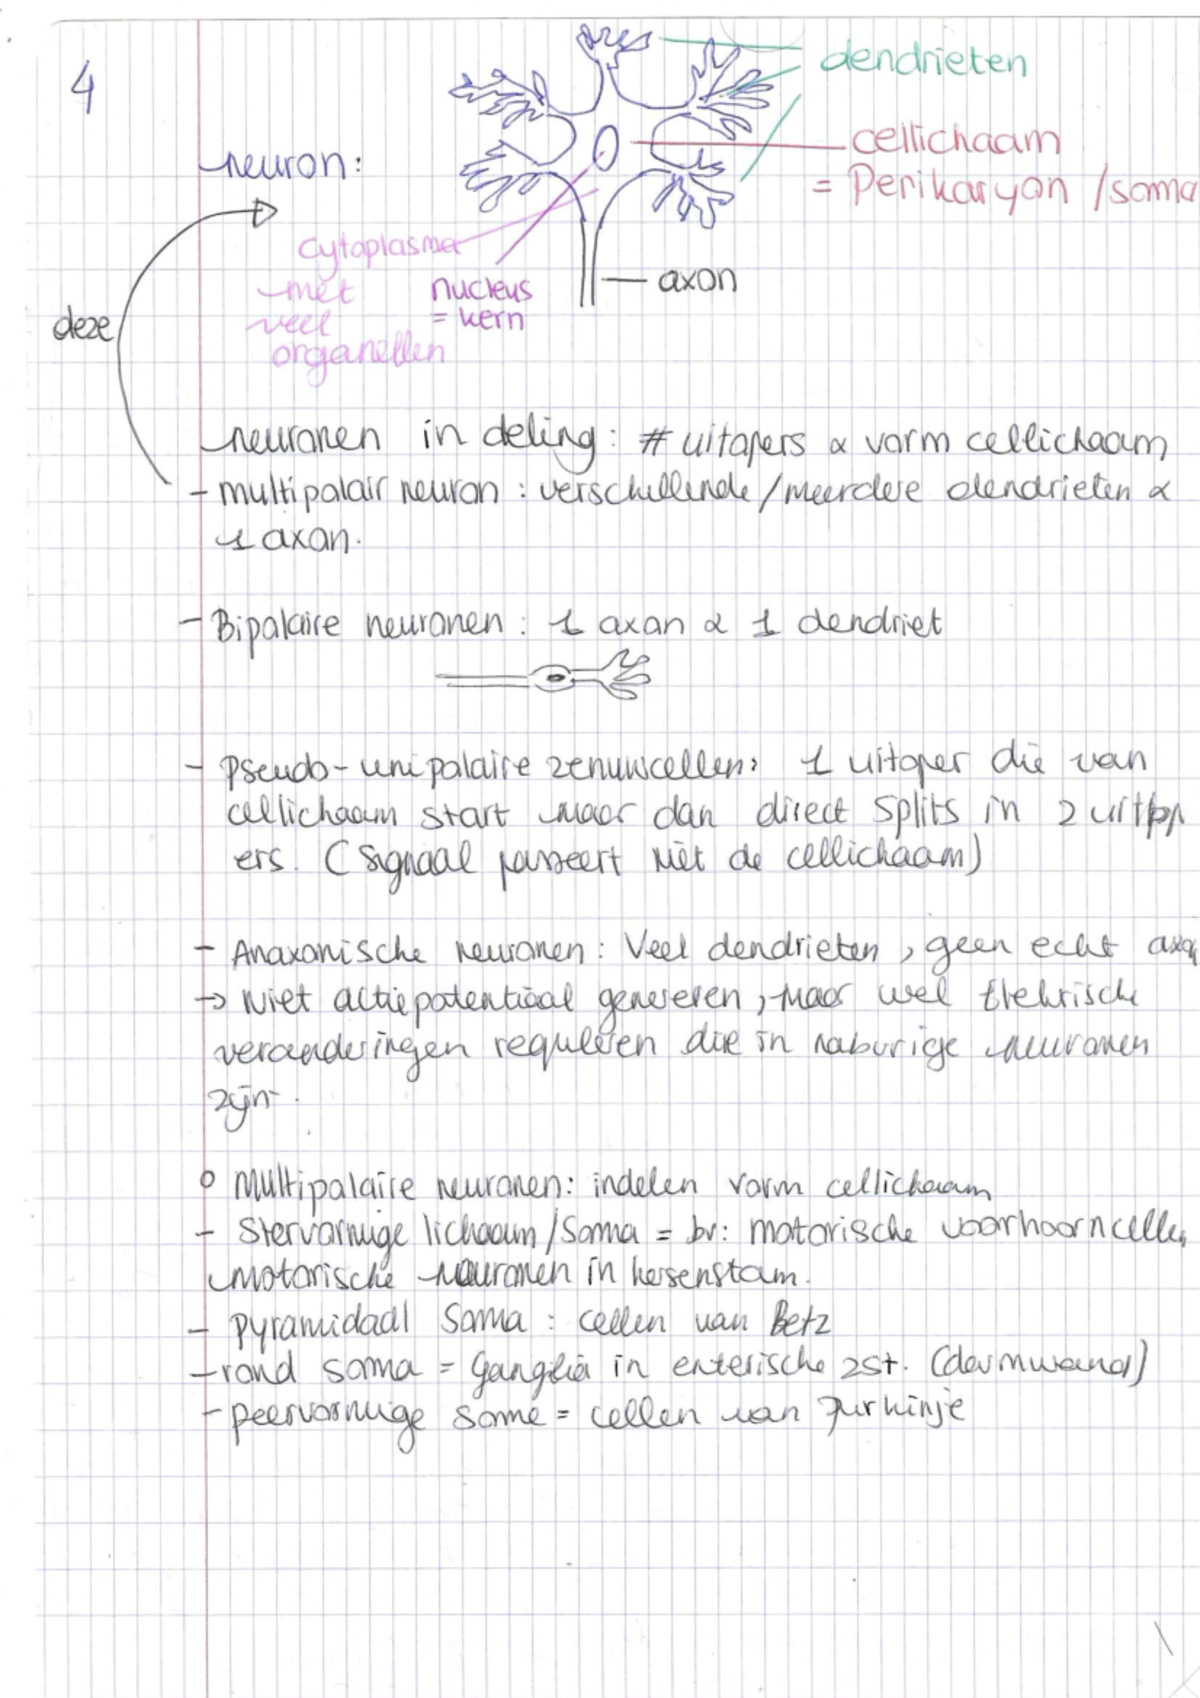 4
dendrieten
cellichaam
= Perikaryon / soma
neuron:
cytoplasma
met
veel
organellen
nucleus
= kern
axon
deze
neuronen in deling: # uitlopers & vorm cellichaam
- multipolair neuron: verschillende/meerdere dendrieten &
1 axon.
- Bipolaire neuronen: 1 axon & 1 dendriet
- pseudo-unipolaire zenuwcellen: 1 uitloper die van
cellichaam start maar dan direct splits in 2 uitlop
ers. (signaal passeert niet de cellichaam)
- Anaxonische neuronen: Veel dendrieten, geen echt axon
→ Niet actiepotentiaal genereren, maar wel elektrische
veranderingen reguleren die in naburige neuronen
zijn.
o Multipolaire neuronen: indelen vorm cellichaam
- Stervormige lichaam/Soma = bv: motorische voorhoorncellen,
motorische neuronen in hersenstam.
- pyramidaal Soma: cellen van Betz
- rond soma = Ganglia in enterische zst. (darmwand)
- peervormige some = cellen van Purkinje